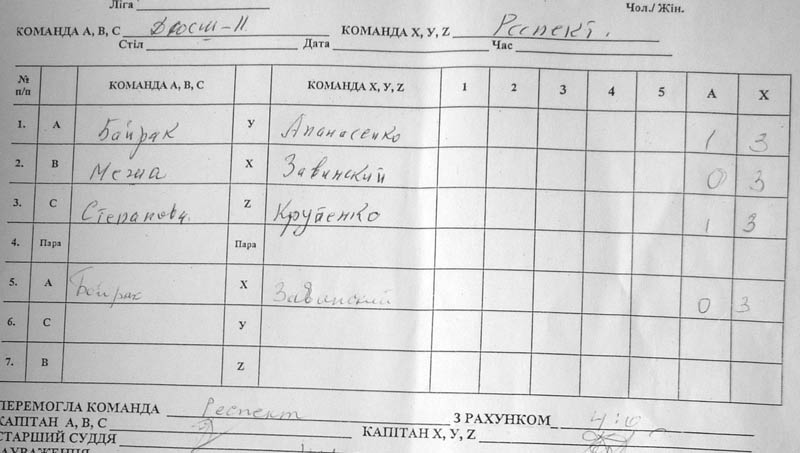 Ліга Чол./ Жін.
КОМАНДА А, В, С КОМАНДА Х, У, Z Респект.
Стіл Дата Час
№ п/п КОМАНДА А, В, С КОМАНДА Х, У, Z 1 2 3 4 5 А Х
1. А Байрак У Апанасенко 1 3
2. В Х Завинский 0 3
3. С Степанова. Z Крупенко 1 3
4. Пара Пара
5. А Байрак Х Завинский 0 3
6. С У
7. В Z
ПЕРЕМОГЛА КОМАНДА Респект З РАХУНКОМ 4:0
КАПІТАН А, В, С КАПІТАН Х, У, Z
СТАРШИЙ СУДДЯ